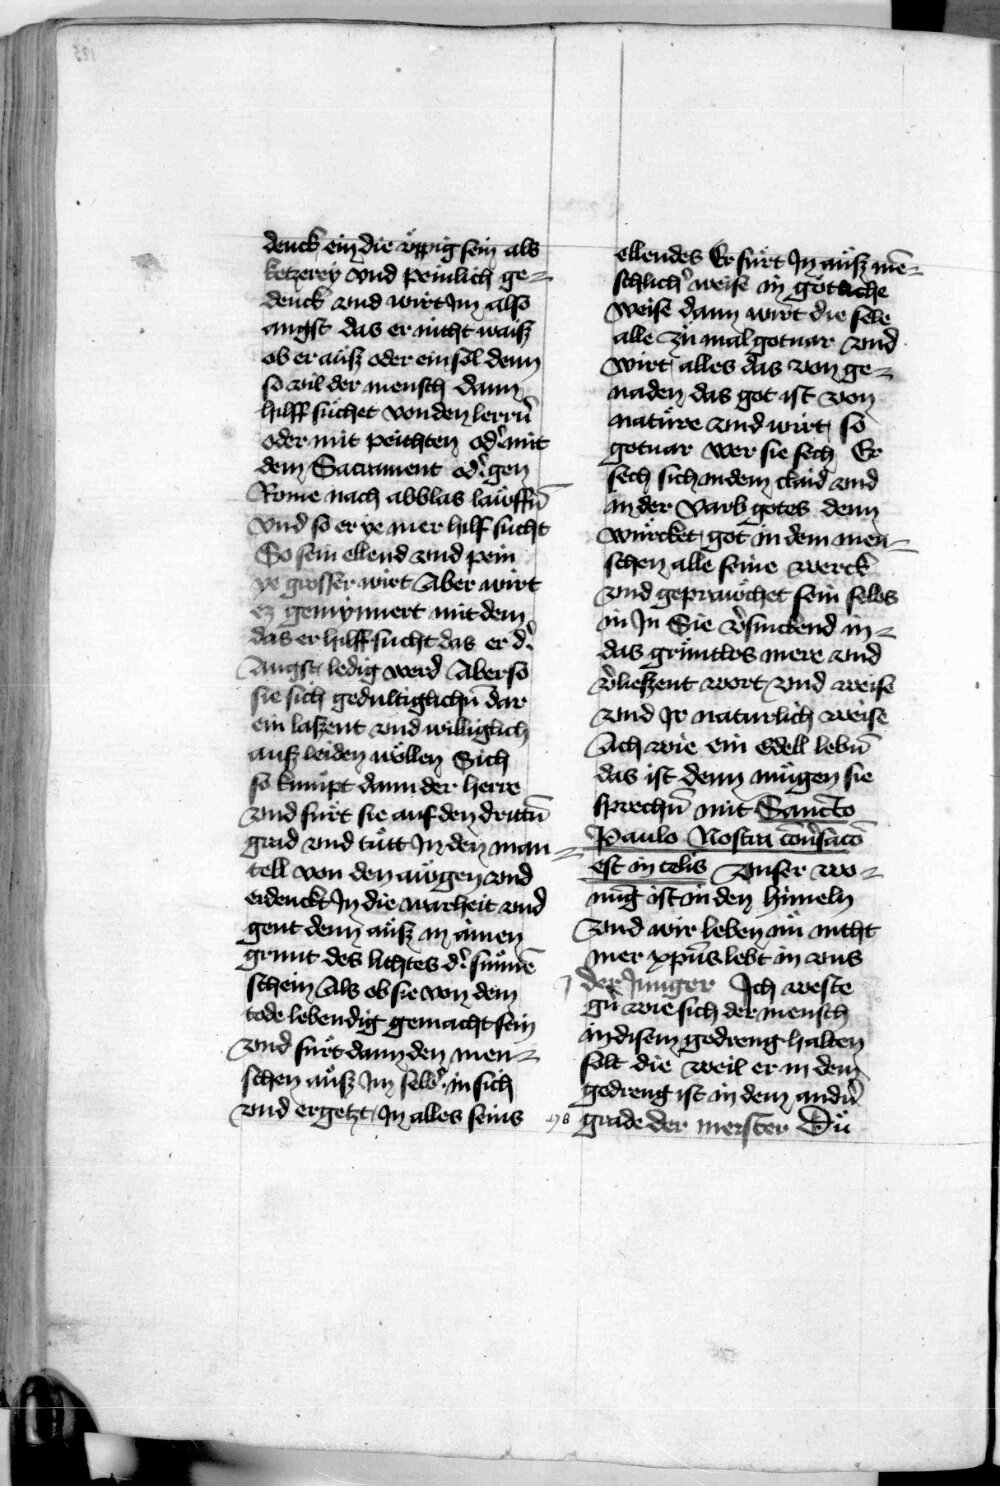 denck ein die v̈ppig sein als
ketzerey vnd peinlich ge=
denck vnd wirt Im also
angst das er nicht waiß
ob er auͤß oder ein sol denn
so wil der mensch dann
hilff suͤchet von den lerrn̄
oder mit peichten od' mit
dem Sacrament od' gen
Rome nach abblas lauͤffn̄
vnd so er ye mer hilf sucht
So sein ellend vnd pein
ye grosser wirt Aber wirt
ez gemynnert mit dem
das er hilff sucht das er d'
Angst ledig werd Aber so
sie sich gedultiglichn̄ dar
ein laßent vnd williglich
auß leiden woͤllen Sich
so knuͤpt dann der herre
vnd fuͤrt sie auf den drittn̄
grad vnd tuͤtt In den man=
tell von den auͤgen vnd
erdenckt In die warheit vnd
gent denn auͤß in ainen
grunt des lichtes d' suͤnnē
schein Als ob sie von dem
tode lebendig gemacht sein
vnd fuͤrt dann den men=
schen auͤß Im selb' in sich
vnd ergetzt In alles seins
ellendes Er fuͤrt In auͤß mē=
schlich' weise in goͤtliche
weise dann wirt die sele
alle zuͤ mal gotuar vnd
wirt alles das von ge=
naden das got ist von
natuͤre vnd wirt so
gotuar wer sie sech Er
sech sich in dem claid vnd
in der varb gotes denn
wuͤrcket got in dem men=
schen alle seine werck
vnd geprauͤchet sein selbs
in In Sie v'sinckend in=
das gruͤntlos mere vnd
v'liezent wort vnd weise
vnd Ir naturlich weise
Ach wie ein edell lebn̄
das ist denn muͤgen sie
sprechn̄ mit Sancto
Paulo Nostra cōu'sacō
est in celis vnser wo=
nūg ist in den himeln
vnd wir leben nuͤ nicht
mer xp̄us lebt in vns
der Junger Ich weste
gn̄ wie sich der mensch
in disem gedreng halten
solt die weil er in dem
gedreng ist in dem andn̄
grade der meister Duͤ